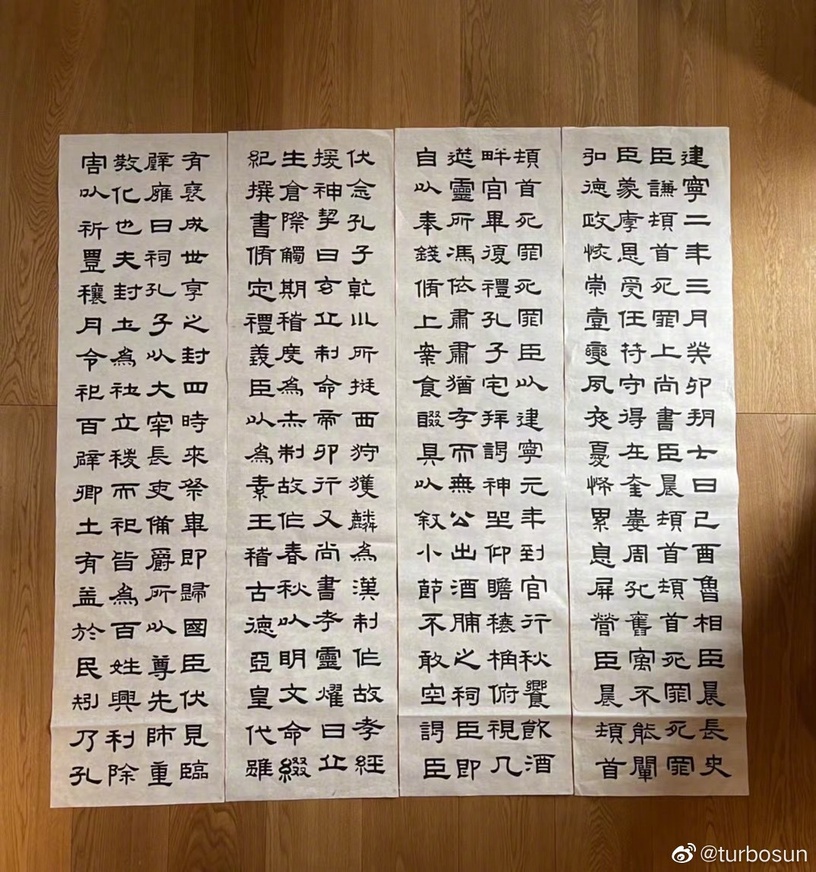 建寧二年三月癸卯朔七日己酉魯相臣晨長史
臣謙頓首死罪上尚書臣晨頓首頓首死罪死罪
臣蒙厚恩受任符守得在奎婁周孔舊寓不能闡
弘德政恢崇壹變夙夜憂怖累息屏營臣晨頓首
頓首死罪死罪臣以建寧元年到官行秋饗飲酒
畔宮畢復禮孔子宅拜謁神坐仰瞻榱桷俯視几
筵靈所馮依肅肅猶存而無公出酒脯之祠臣即
自以奉錢脩上案食醊具以叙小節不敢空謁臣
伏念孔子乾川所挺西狩獲麟為漢制作故孝經
援神契曰玄丘制命帝卯行又尚書考靈燿曰丘
生倉際觸期稽度為赤制故作春秋以明文命綴
紀撰書脩定禮義臣以為素王稽古德亞皇代雖
有褒成世享之封四時來祭畢即歸國臣伏見臨
辟雍日祠孔子以大牢長吏備爵所以尊先師重
教化也夫封土為社立稷而祀皆為百姓興利除
害以祈豐穰月令祀百辟卿士有益於民矧乃孔
@turbosun